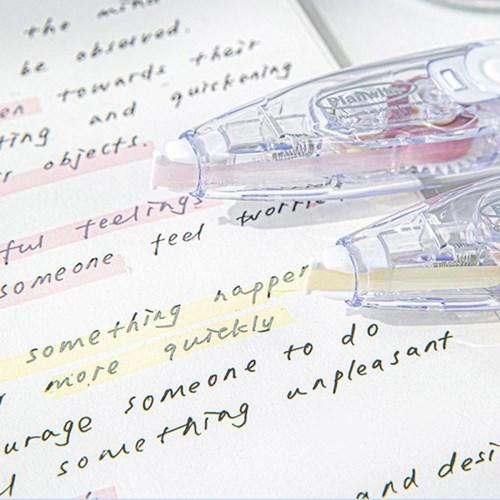 the mind
be observed.
en towards their
ting and quickening
r objects.
ful feelings
someone feel worrie
something happen
r more quickly
urage someone to do
d something unpleasant
and desi
Planwith